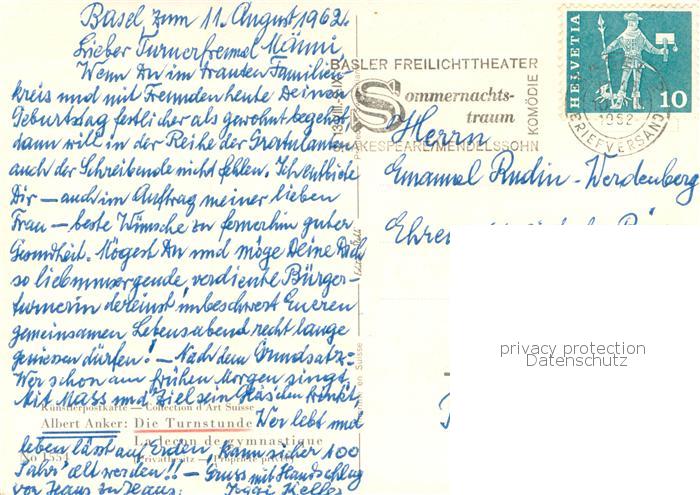 Basel zum 11. August 1962.
Lieber Turnerfreund Männi,
Wenn Du im trauten Familien-
kreis und mit Freunden heute Deinen
Geburtstag festlicher als gewohnt begehst
dann will in der Reihe der Gratulanten
auch der Schreibende nicht fehlen. Ich entbiete
Dir – auch im Auftrag meiner lieben
Frau – beste Wünsche zu fernerhin guter
Gesundheit. Mögest Du und möge Deine Dich
so liebumsorgende, verdiente Bürger-
turnerin dereinst unbeschwert Eueren
gemeinsamen Lebensabend recht lange
geniessen dürfen! – Nach dem Grundsatz:
Wer schon am frühen Morgen singt
Mit Mass und Ziel sein Gläschen trinkt
Wer lebt und
leben lässt auf Erden, kann sicher 100
Jahr' alt werden!! – Gruss mit Handschlag
von Haus zu Haus: Keller
Künstlerpostkarte — Collection d'Art Suisse
Albert Anker: Die Turnstunde
La leçon de gymnastique
No 1534 Privatbesitz — Propriété privée
en Suisse
BASLER FREILICHTTHEATER
Sommernachts-
traum
KOMÖDIE
SHAKESPEARE/MENDELSSOHN
HELVETIA
10
1962
BRIEFVERSAND
Herrn
Emanuel Rudin-Werdenberg
Ehren
privacy protection
Datenschutz